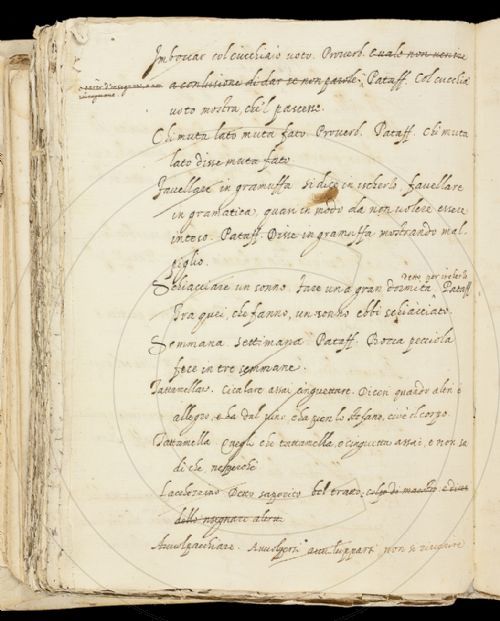 Imboccar col cucchiaio uoto. Prouerb. Quale non uenire
a conclusione di dar se non parole. Pataff. Col cucchia
uoto mostra, che'l pascesse.
Chi muta lato muta fato. Prouerb. Pataff. Chi muta
lato disse muta fato
Fauellare in gramuffa si dice in ischerzo fauellare
in gramatica, quasi in modo da non uolere essere
inteso. Pataff. Disse in gramuffa mostrando mal
piglio.
detto per ischerzo
Schiacciare un sonno. fare una gran dormita Pataff.
Tra quei, che fanno, un sonno ebbi schiacciato.
Semmana. Settimana. Pataff. Bocca pecciola
fece in tre semmane.
Tattamellare. Cicalare assai, cinguettare. Dicesi quando altri è
allegro, e ha del uino, e ha pien lo stefano, cioè il corpo.
Tattamella. Quegli che tattamella, e cinguetta assai, e non sa
di che, ne perche
Lacchezzino Detto saporito bel tratto, colpo di maestro, e dicesi
dello
Auuolpacchiare. Auuolgersi auuilupparsi non si rinuenire